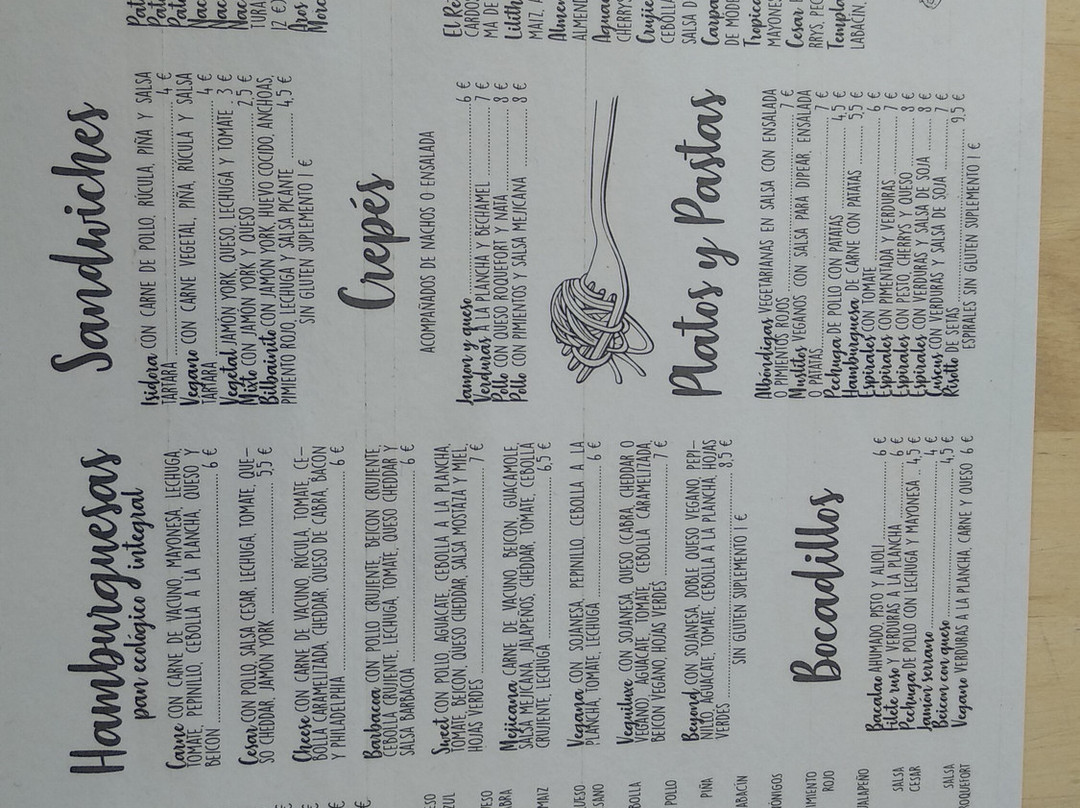 Hamburguesas
pan ecológico integral
Carne CON CARNE DE VACUNO, MAYONESA, LECHUGA,
TOMATE, PEPINILLO, CEBOLLA A LA PLANCHA, QUESO Y
BEICON 6 €
Cesar CON POLLO, SALSA CESAR, LECHUGA, TOMATE, QUE-
SO CHEDDAR, JAMÓN YORK 5,5 €
Cheese CON CARNE DE VACUNO, RÚCULA, TOMATE, CE-
BOLLA CARAMELIZADA, CHEDDAR, QUESO DE CABRA, BACON
Y PHILADELPHIA 6 €
Barbacoa CON POLLO CRUJIENTE, BEICON CRUJIENTE,
CEBOLLA CRUJIENTE, LECHUGA, TOMATE, QUESO CHEDDAR Y
SALSA BARBACOA 6 €
Sweet CON POLLO, AGUACATE, CEBOLLA A LA PLANCHA,
TOMATE, BEICON, QUESO CHEDDAR, SALSA MOSTAZA Y MIEL,
HOJAS VERDES 7 €
Mejicana CARNE DE VACUNO, BEICON, GUACAMOLE,
SALSA MEJICANA, JALAPEÑOS, CHEDDAR, TOMATE, CEBOLLA
CRUJIENTE, LECHUGA 6,5 €
Vegana CON SOJANESA, PEPINILLO, CEBOLLA A LA
PLANCHA, TOMATE, LECHUGA 6 €
Veguiluxe CON SOJANESA, QUESO (CABRA, CHEDDAR O
VEGANO), AGUACATE, TOMATE, CEBOLLA CARAMELIZADA,
BEICON VEGANO, HOJAS VERDES 7 €
Beyond CON SOJANESA, DOBLE QUESO VEGANO, PEPI-
NILLO, AGUACATE, TOMATE, CEBOLLA A LA PLANCHA, HOJAS
VERDES 8,5 €
SIN GLUTEN SUPLEMENTO 1 €
Bocadillos
Bacalao AHUMADO, PISTO Y ALIOLI 6 €
Filete ruso Y VERDURAS A LA PLANCHA 6 €
Pechuga DE POLLO CON LECHUGA Y MAYONESA 4,5 €
Jamón serrano 4 €
Beicon con queso 4,5 €
Vegano VERDURAS A LA PLANCHA, CARNE Y QUESO 6 €
Sandwiches
Isidora CON CARNE DE POLLO, RÚCULA, PIÑA Y SALSA
TÁRTARA 4 €
Vegano CON CARNE VEGETAL, PIÑA, RÚCULA Y SALSA
TÁRTARA 4 €
Vegetal JAMÓN YORK, QUESO, LECHUGA Y TOMATE 3 €
Mixto CON JAMÓN YORK Y QUESO 2,5 €
Bilbainito CON JAMÓN YORK, HUEVO COCIDO, ANCHOAS,
PIMIENTO ROJO, LECHUGA Y SALSA PICANTE 4,5 €
SIN GLUTEN SUPLEMENTO 1 €
Crepés
ACOMPAÑADOS DE NACHOS O ENSALADA
Jamón y queso 6 €
Verduras A LA PLANCHA Y BECHAMEL 7 €
Pollo CON QUESO ROQUEFORT Y NATA 8 €
Pollo CON PIMIENTOS Y SALSA MEJICANA 8 €
Platos y Pastas
Albóndigas VEGETARIANAS EN SALSA CON ENSALADA
O PIMIENTOS ROJOS 7 €
Muslitos VEGANOS CON SALSA PARA DIPEAR, ENSALADA
O PATATAS 7 €
Pechuga DE POLLO CON PATATAS 4,5 €
Hamburguesa DE CARNE CON PATATAS 5,5 €
Espirales CON TOMATE 6 €
Espirales CON PIMENTADA Y VERDURAS 7 €
Espirales CON PESTO, CHERRYS Y QUESO 8 €
Espirales CON VERDURAS Y SALSA DE SOJA 8 €
Cuscus CON VERDURAS Y SALSA DE SOJA 7 €
Risotto DE SETAS 9,5 €
ESPIRALES SIN GLUTEN SUPLEMENTO 1 €
TURA
(2 €)
El Re
CARDOS
MA DE
Lilith
MAIZ, A
ALMEND
CHERRYS
CEBOLLA
SALSA D
DE MODE
Tropica
MAYONES
Cesar
RRYS, PEC
Templa
LABACÍN,
MAIZ
POLLO
PIÑA
ABACÍN
IMIENTO
ROJO
JALAPEÑO
SALSA
CESAR
SALSA
OQUEFORT